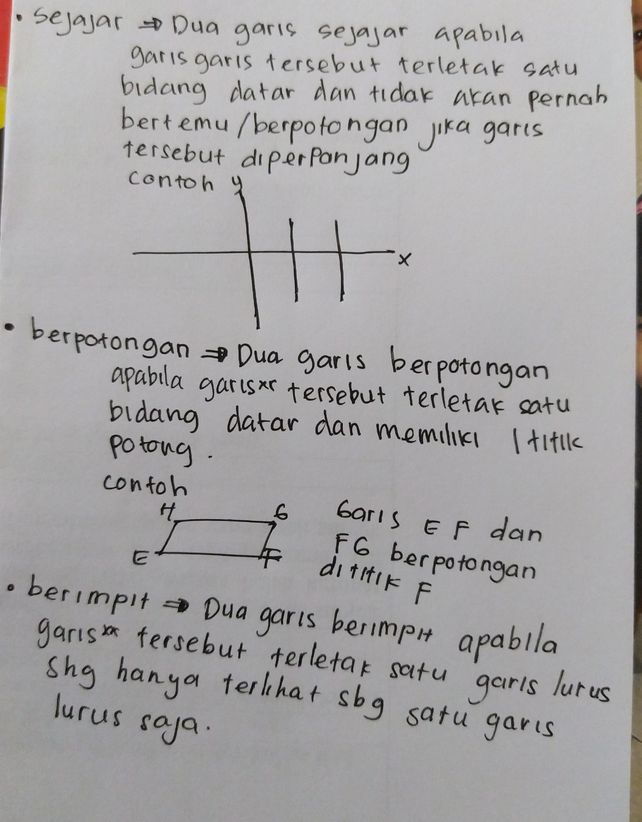 • Sejajar ⇒ Dua garis sejajar apabila
garis garis tersebut terletak satu
bidang datar dan tidak akan pernah
bertemu/berpotongan jika garis
tersebut diperpanjang
contoh y
x
• berpotongan ⇒ Dua garis berpotongan
apabila garis" tersebut terletak satu
bidang datar dan memiliki 1 titik
potong.
contoh
H G
E F
Garis EF dan
FG berpotongan
di titik F
• berimpit ⇒ Dua garis berimpit apabila
garis" tersebut terletak satu garis lurus
shg hanya terlihat sbg satu garis
lurus saja.